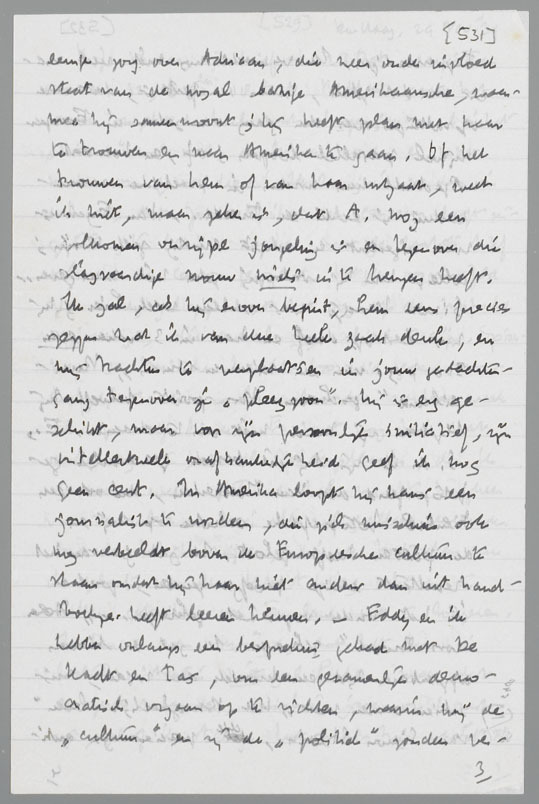 [531]
eenige zorg over Adriaan, die zeer onder invloed
staat van de nogal bazige Amerikaansche, waar-
mee hij samenwoont; hij heeft plan met haar
te trouwen en naar Amerika te gaan. Of het
trouwen van hem of van haar uitgaat, weet
ik niet, maar zeker is, dat A. nog een
volkomen onrijpe jongeling is en tegenover die
vrouw niets in te brengen heeft.
Ik zal, als hij erover begint, hem eens precies
zeggen wat ik van deze heele zaak denk, en
mij trachten te verplaatsen in jouw gedachten-
gang tegenover zijn "pleegzoon". Hij is erg ge-
schikt, maar voor zijn persoonlijk initiatief, zijn
intellectueele onafhankelijkheid geef ik nog
geen cent. In Amerika loopt hij kans een
journalist te worden, die zich misschien ook
nog verbeeldt boven de Europeesche cultuur te
staan omdat hij haar niet anders dan uit hand-
boekjes heeft leeren kennen. — Eddy en ik
hebben onlangs een bespreking gehad met De
Kadt en Tas, om een gezamenlijk demo-
cratisch orgaan op te richten, waarin wij de
"cultuur" en zij de "politiek" zouden ver-
3